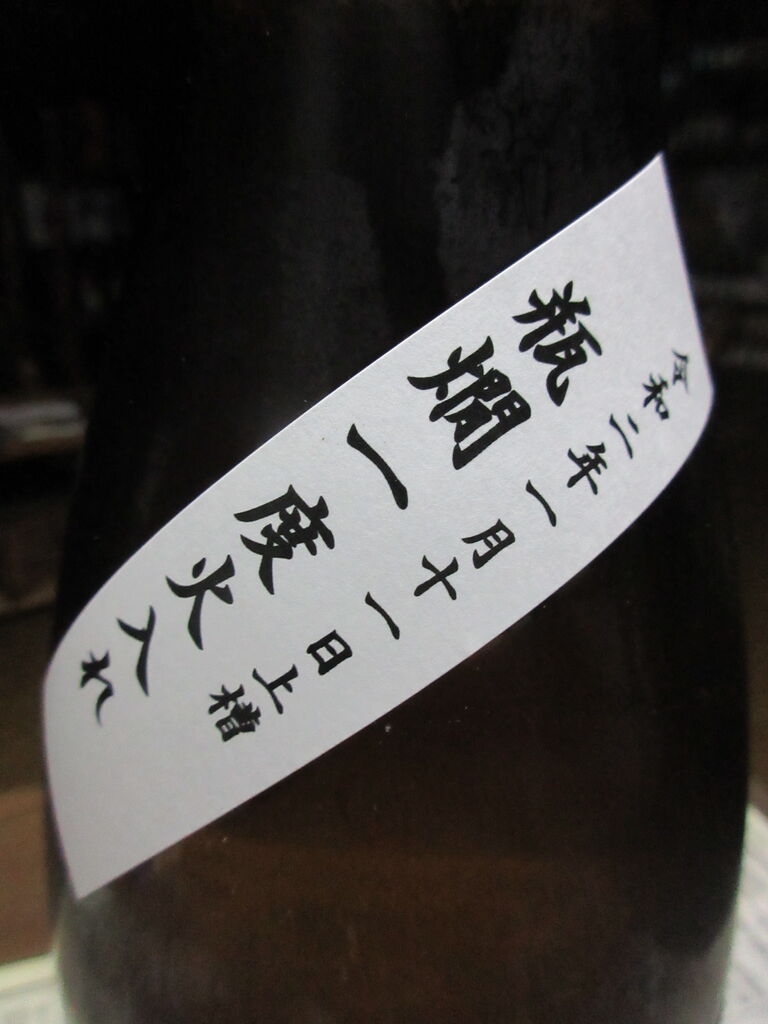 令和二年一月十一日上槽
瓶燗一度火入れ